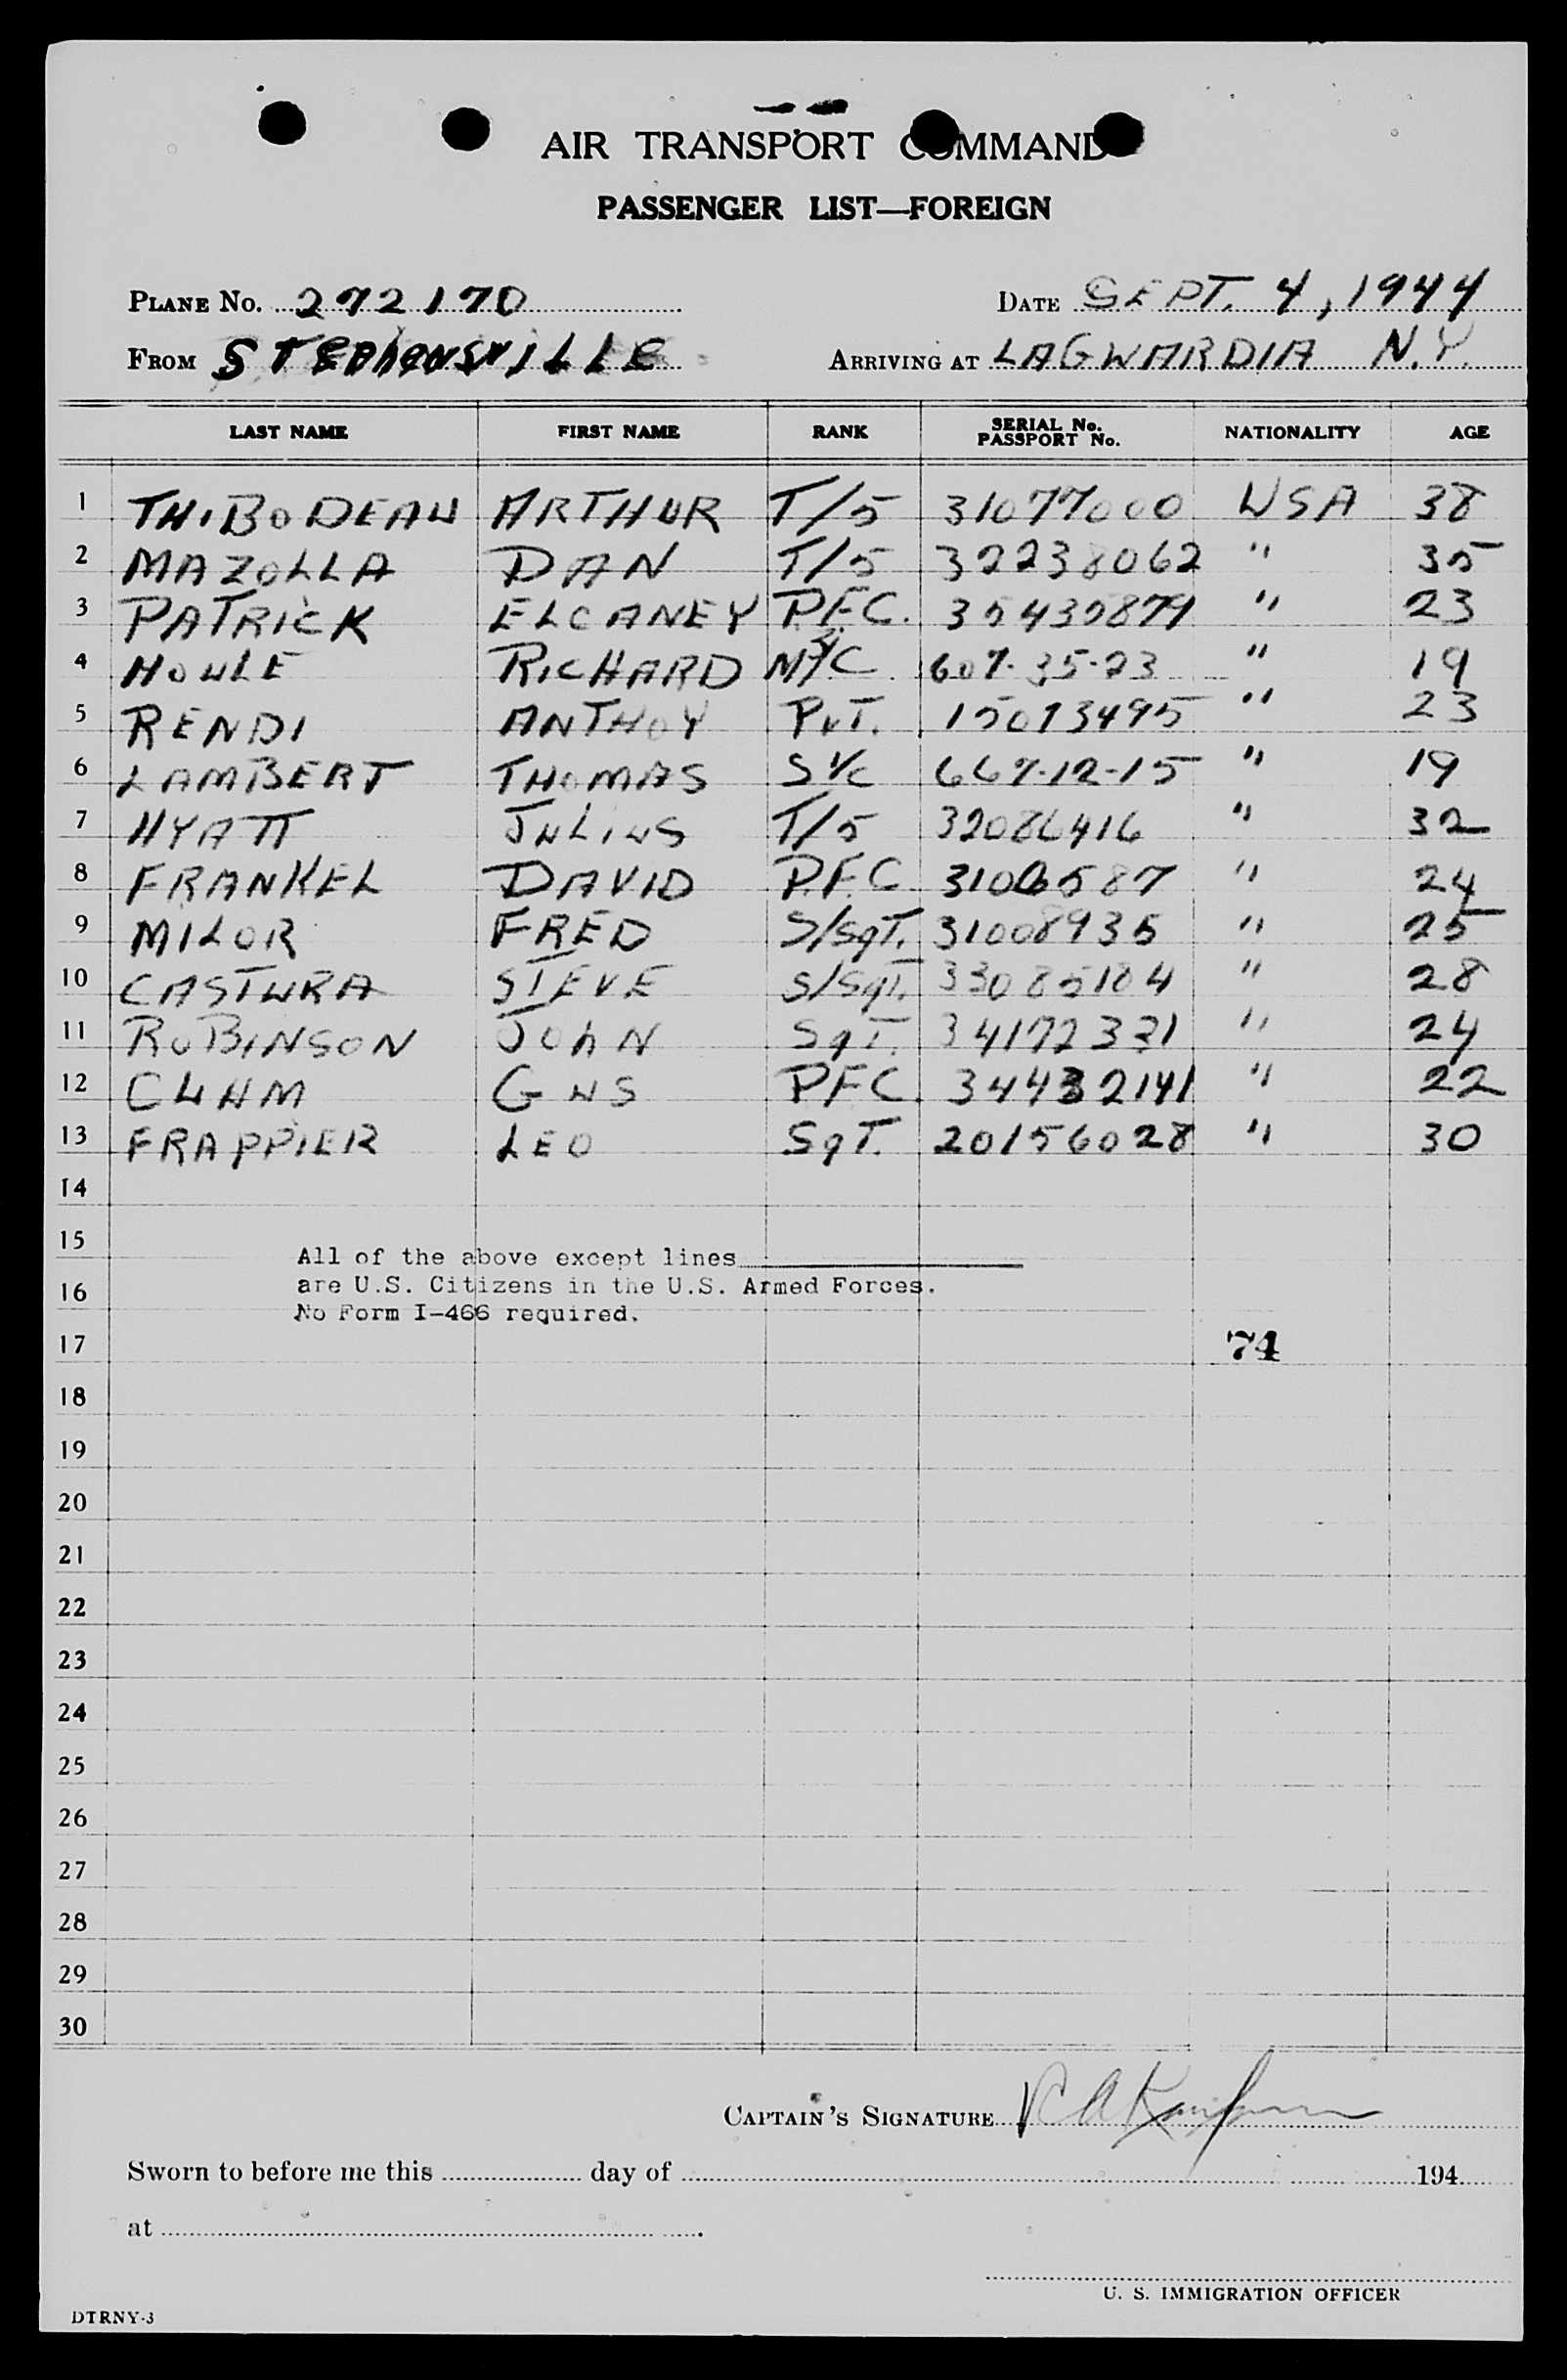 AIR TRANSPORT COMMAND
PASSENGER LIST—FOREIGN
PLANE No. 272170 DATE SEPT. 4, 1944
FROM STEPHENSVILLE ARRIVING AT LAGUARDIA N.Y.
LAST NAME FIRST NAME RANK SERIAL No. PASSPORT No. NATIONALITY AGE
1 THIBODEAU ARTHUR T/5 31077000 USA 38
2 MAZOLLA DAN T/5 32238062 " 35
3 PATRICK ELCANEY P.F.C. 35435879 " 23
4 HOULE RICHARD 607-35-23 " 19
5 RENDI ANTHOY PVT. 15013495 " 23
6 LAMBERT THOMAS S1/c 667-12-15 " 19
7 HYATT JULIUS T/5 32086416 " 32
8 FRANKEL DAVID P.F.C " 24
9 MILOR FRED S/SgT. 31008935 " 25
10 CASTURA STEVE S/SgT. 33085184 " 28
11 ROBINSON JOHN SgT. 34172331 " 24
12 CUHM GUS PFC 34432141 " 22
13 FRAPPIER LEO SgT. 20156028 " 30
14
15
All of the above except lines
16 are U.S. Citizens in the U.S. Armed Forces.
No Form I-466 required.
17 74
18
19
20
21
22
23
24
25
26
27
28
29
30
CAPTAIN'S SIGNATURE
Sworn to before me this day of 194
at
U. S. IMMIGRATION OFFICER
DTRNY-3